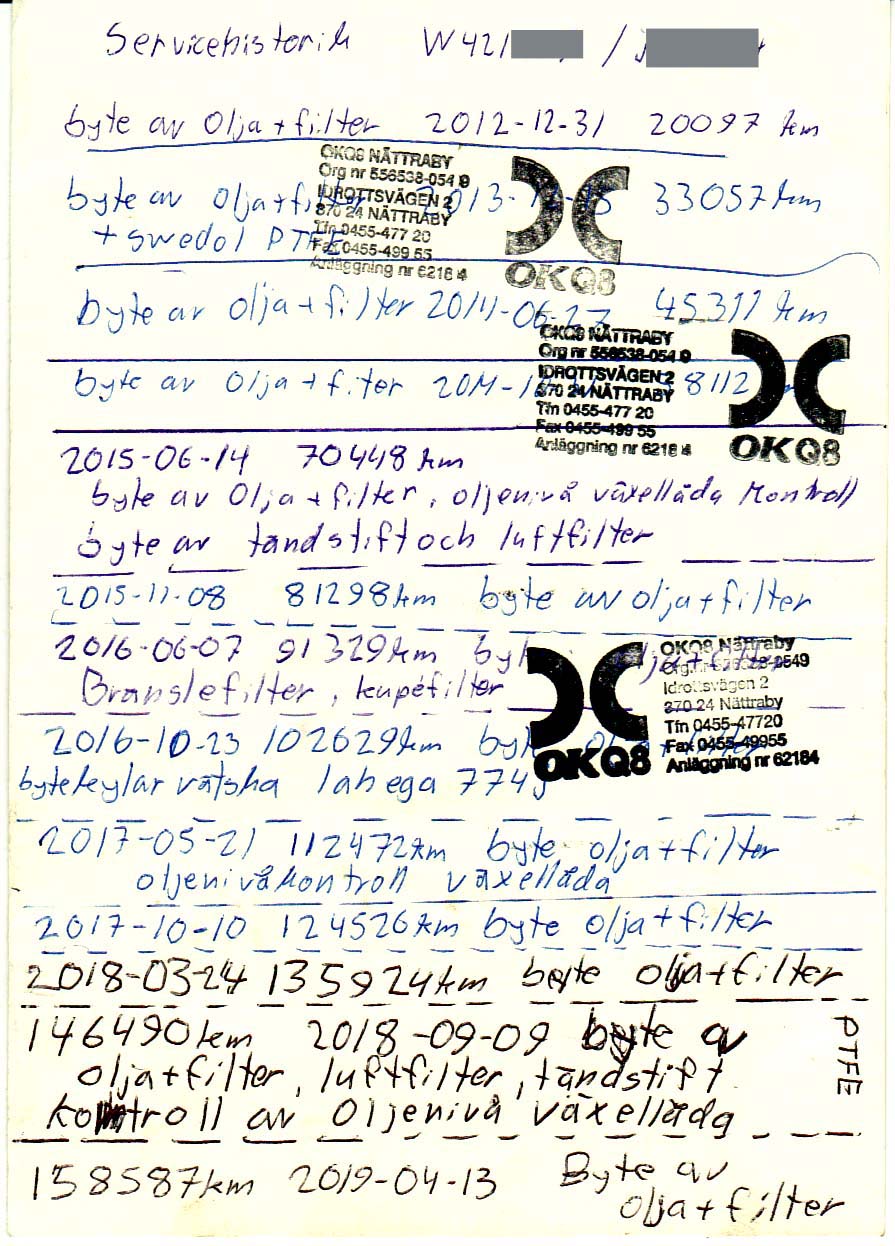 Servicehistorik W421 /
byte av olja + filter 2012-12-31 20097 km
OKQ8 NÄTTRABY
Org nr 556538-054 9
IDROTTSVÄGEN 2
370 24 NÄTTRABY
Tfn 0455-477 20
Fax 0455-499 55
Anläggning nr 6218 4
OKQ8
byte av olja + filter 33057 km
+ swedol PTFE
byte av olja + filter 2014-06-27 45311 km
OKQ8 NÄTTRABY
Org nr 556538-054 9
IDROTTSVÄGEN 2
370 24 NÄTTRABY
Tfn 0455-477 20
Fax 0455-499 55
Anläggning nr 6218 4
OKQ8
byte av olja + filter 8112
2015-06-14 70448 km
byte av olja + filter, oljenivå växellåda kontroll
byte av tändstift och luftfilter
2015-11-08 81298 km byte av olja + filter
2016-06-07 91329 km olja + filter
Bränslefilter, kupéfilter
OKQ8 Nättraby
Idrottsvägen 2
370 24 Nättraby
Tfn 0455-47720
Fax 0455-49955
Anläggning nr 62184
OKQ8
2016-10-23 102629 km
byte kylar vätska lahega 774
2017-05-21 112472 km byte olja + filter
oljenivåkontroll växellåda
2017-10-10 124526 km byte olja + filter
2018-03-24 135924 km byte olja + filter
146490 km 2018-09-09 byte a
olja + filter, luftfilter, tändstift
kontroll av oljenivå växellåda
PTFE
158587 km 2019-04-13 Byte av
olja + filter